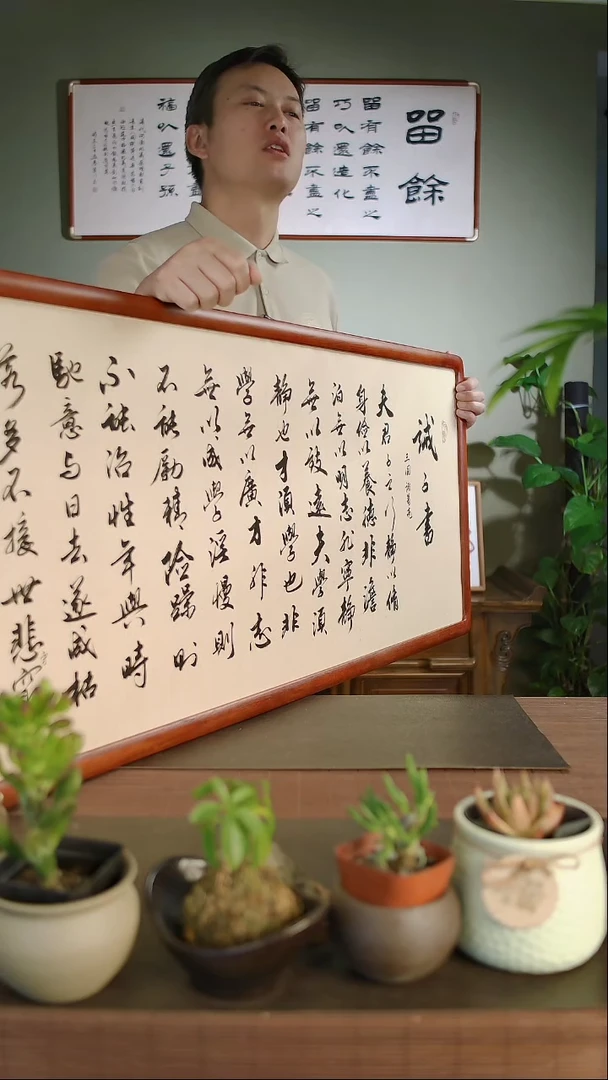 畱餘
畱有餘不盡之
巧以還造化
畱有餘不盡之
福以還子孫
誡子書
三國 諸葛亮
夫君子之行靜以脩
身儉以養德非澹
泊無以明志非寧靜
無以致遠夫學須
靜也才須學也非
學無以廣才非志
無以成學淫慢則
不能勵精險躁則
不能治性年與時
馳意与日去遂成枯
落多不接世悲守